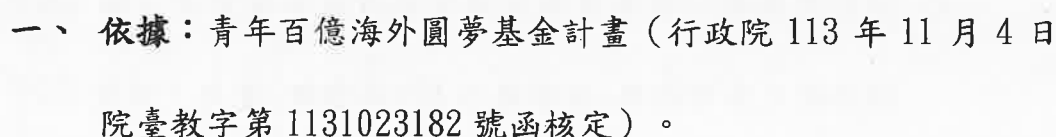 一、 依據：青年百億海外圓夢基金計畫（行政院 113 年 11 月 4 日
院臺教字第 1131023182 號函核定）。